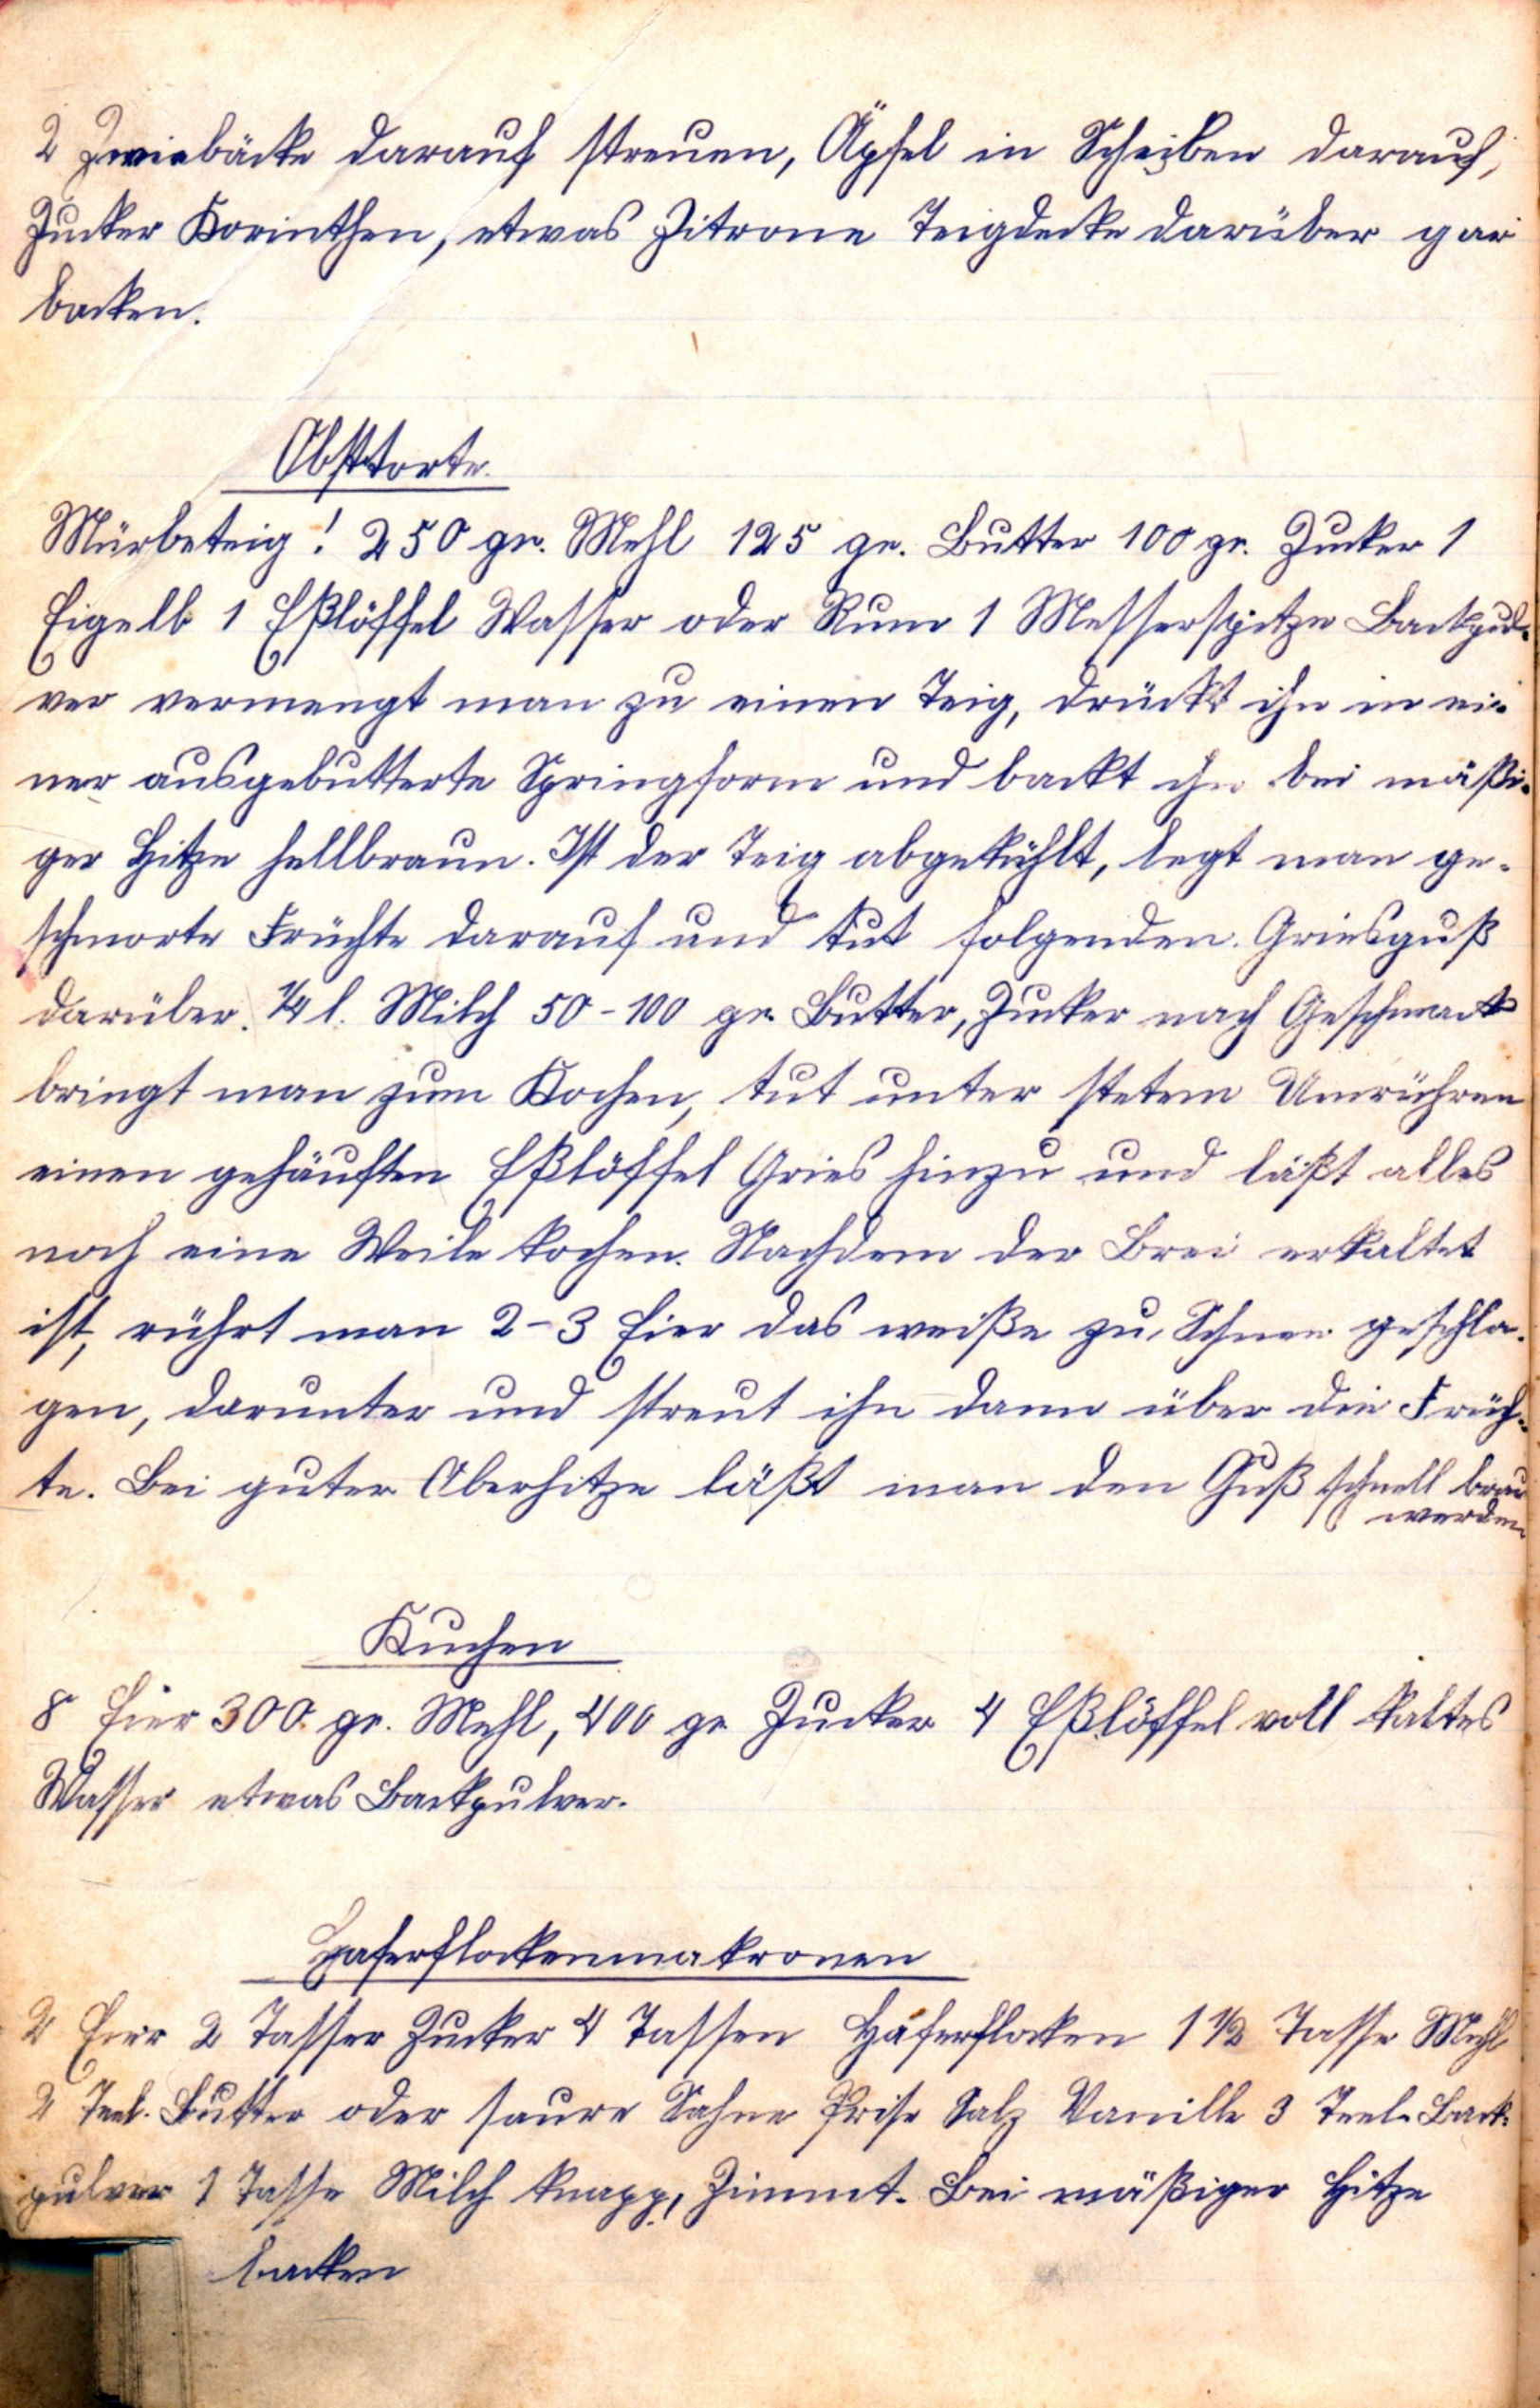 2 Zwiebäcke darauf streuen, Äpfel in Scheiben darauf,
Zucker Korinthen, etwas Zitrone Teigdecke darüber gar
backen.
Obsttorte.
Mürbeteig! 250 gr. Mehl 125 gr. Butter 100 gr. Zucker 1
Eigelb 1 Eßlöffel Wasser oder Rum 1 Messerspitze Backpul-
ver vermengt man zu einen Teig, drückt ihn in ei-
ner ausgebutterte Springform und backt ihn bei mäßi-
ger Hitze hellbraun. Ist der Teig abgekühlt, legt man ge-
schmorte Früchte darauf und tut folgenden Griesguß
darüber. 1/4 l. Milch 50-100 gr. Butter, Zucker nach Geschmack
bringt man zum Kochen, tut unter stetem Umrühren
einen gehäuften Eßlöffel Gries hinzu und läßt alles
noch eine Weile kochen. Nachdem der Brei erkaltet
ist, rührt man 2-3 Eier das weiße zu Schnee geschla-
gen, darunter und streut ihn dann über die Früch-
te. Bei guter Oberhitze läßt man den Guß schnell braun
werden
Kuchen
8 Eier 300 gr. Mehl, 400 gr Zucker 4 Eßlöffel voll kaltes
Wasser etwas Backpulver.
Haferflockenmakronen
2 Eier 2 Tassen Zucker 4 Tassen Haferflocken 1 1/2 Tasse Mehl
2 Teel. Butter oder saure Sahne Prise Salz Vanille 3 Teel. Back-
pulver 1 Tasse Milch knapp, Zimmt. Bei mäßiger Hitze
backen